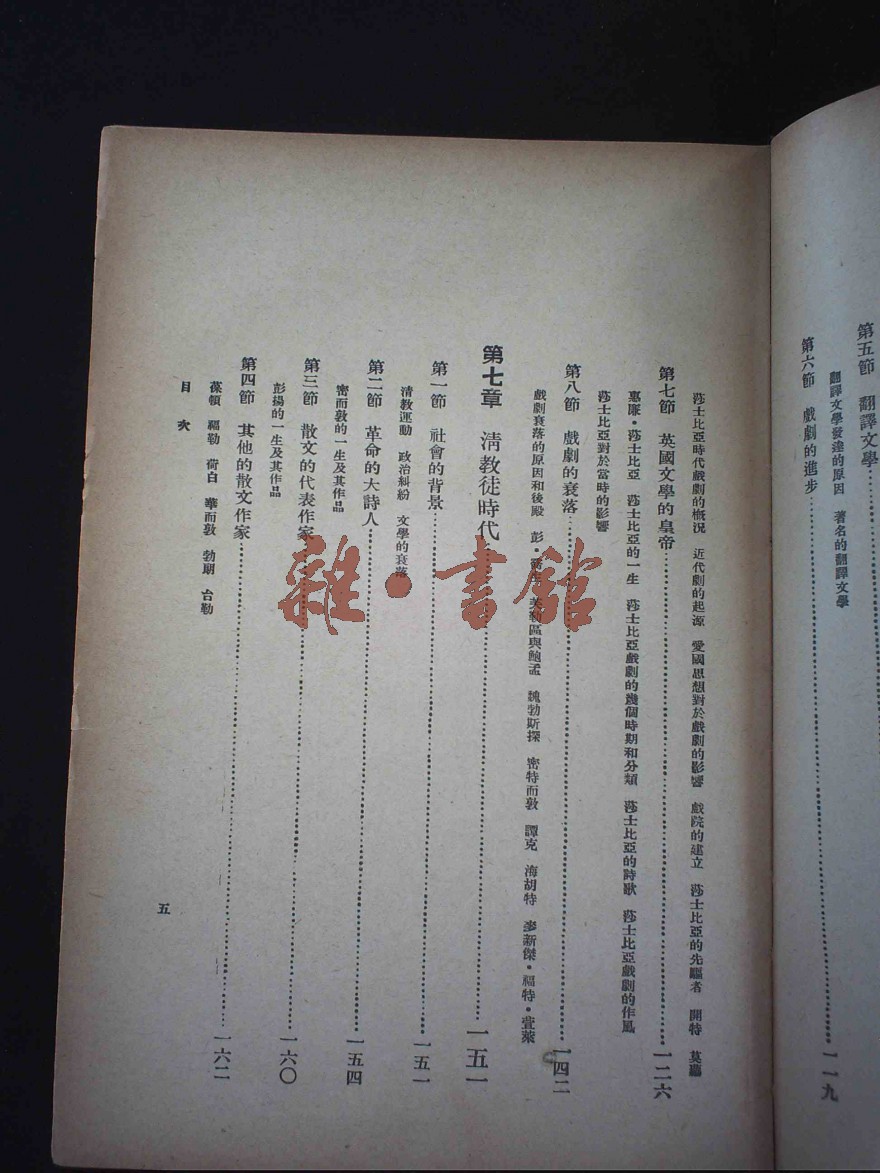 第五節　翻譯文學
翻譯文學發達的原因　著名的翻譯文學
第六節　戲劇的進步……一一九
莎士比亞時代戲劇的概況　近代劇的起源　愛國思想對於戲劇的影響　戲院的建立　莎士比亞的先驅者　開特　莫
第七節　英國文學的皇帝……一二六
惠廉·莎士比亞　莎士比亞的一生　莎士比亞戲劇的幾個時期和分類　莎士比亞的詩歌　莎士比亞戲劇的作風
莎士比亞對於當時的影響
第八節　戲劇的衰落……一四二
戲劇衰落的原因和後殿　彭·生　區與鮑孟　魏勃斯探　密特而敦　譚克　海胡特　麥新傑·福特·萱萊
第七章　淸教徒時代……一五一
第一節　社會的背景……一五一
淸教運動　政治糾紛　文學的衰落
第二節　革命的大詩人……一五四
密而敦的一生及其作品
第三節　散文的代表作家……一六〇
彭揚的一生及其作品
第四節　其他的散文作家……一六二
葆頓　福勒　荷白　華而敦　勃朗　台勒
目次
五
雜·書館